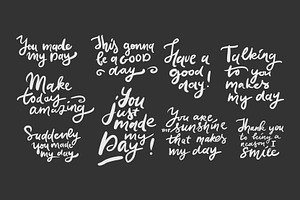 You made
my Day
This gonna
be a GOOD
day
Have a
good
day!
Talking
to you
makes
my day
Make
today
amazing
You
just
made
my
Day!
Suddenly
you made
my day
You are
my sunshine
that makes
my day
Thank you
to being a
reason I
Smile